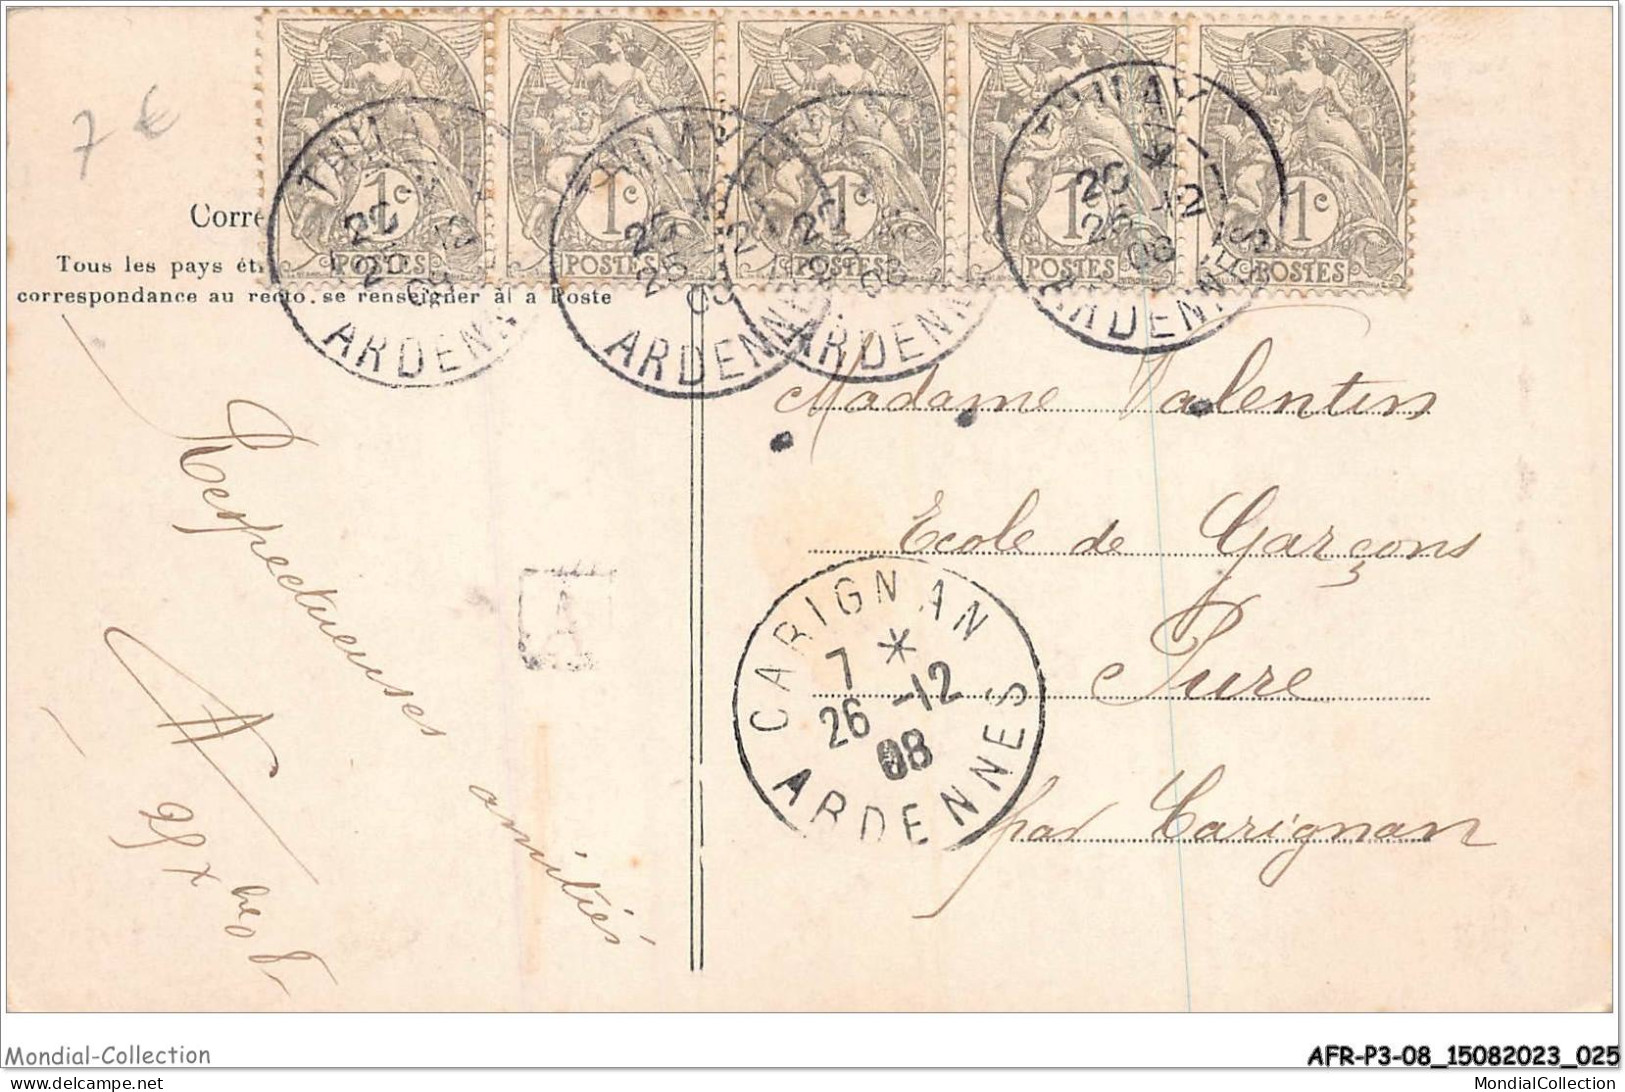 7 €
Corre
Tous les pays ét
correspondance au recto, se renseigner à l a Poste
1c
POSTES
1c
POSTES
1c
POSTES
1c
POSTES
1c
POSTES
ARDENN
ARDENNE
ARDENNE
20 *
26 -12
08
ARDENNES
Respectueuses amitiés
25 Xbre 08
A
Madame Valentin
Ecole de Garçons
Pure
par Carignan
CARIGNAN
7 *
26 -12
08
ARDENNES
Mondial-Collection
AFR-P3-08_15082023_025
delcampe.net
MondialCollection